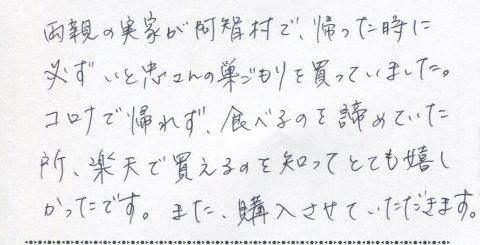 両親の実家が阿智村で、帰った時に
必ずいと忠さんの巣ごもりを買っていました。
コロナで帰れず、食べるのを諦めていた
所、楽天で買えるのを知ってとても嬉し
かったです。また、購入させていただきます。